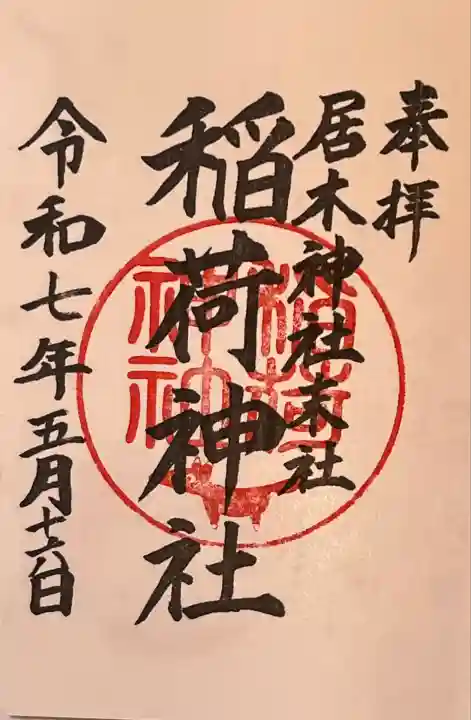 奉拝
居木神社末社
稲荷神社
令和七年五月十六日